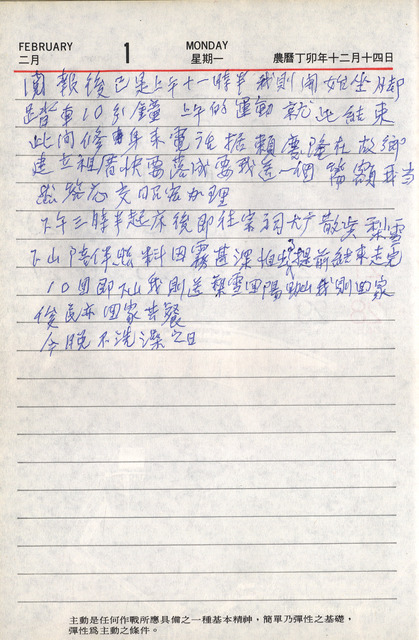 FEBRUARY
二月
1
MONDAY
星期一
農曆丁卯年十二月十四日
閱報後已是上午十一時半我則開始坐腳
踏車10分鐘上午的運動就此結束
此間修年來電話据賴應隆在故鄉
建立祖厝快要落成要我送一個匾額耳当
然答応交昭宏办理
下午三時半起床後即往宗祠大广散步梨雪
下山陪伴 料因霧甚深怕 提前結來走完
10圈即下山我則送梨雪回陽 山我則回家
俊民亦回家共餐
今晚不洗澡之日
主動是任何作戰所應具備之一種基本精神，簡單乃彈性之基礎，
彈性爲主動之條件。